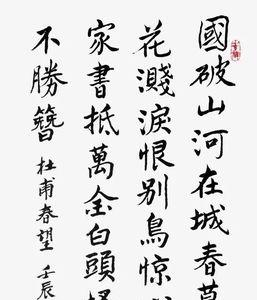 國破山河在城春草
花濺淚恨别鳥惊
家書抵萬金白頭
不勝簪 杜甫春望 壬辰